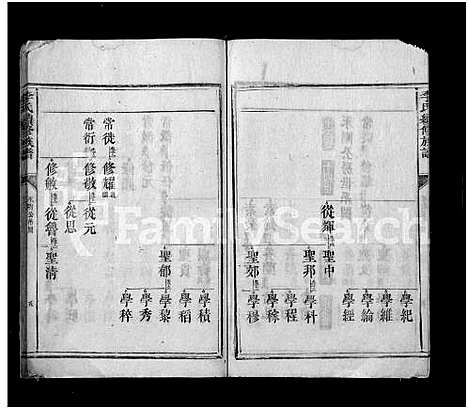 李氏續修族譜
學紀
學維
學綸
學經
從輝 聖中
聖邦 學科
學程
學稼
聖郊 學穆
FamilySearch
學積
學稻
聖郁 學黎
學秀
學稗
常從 修耀
常衍 修敬 從元
從思
修敏 從魯 聖清
李氏續修族譜